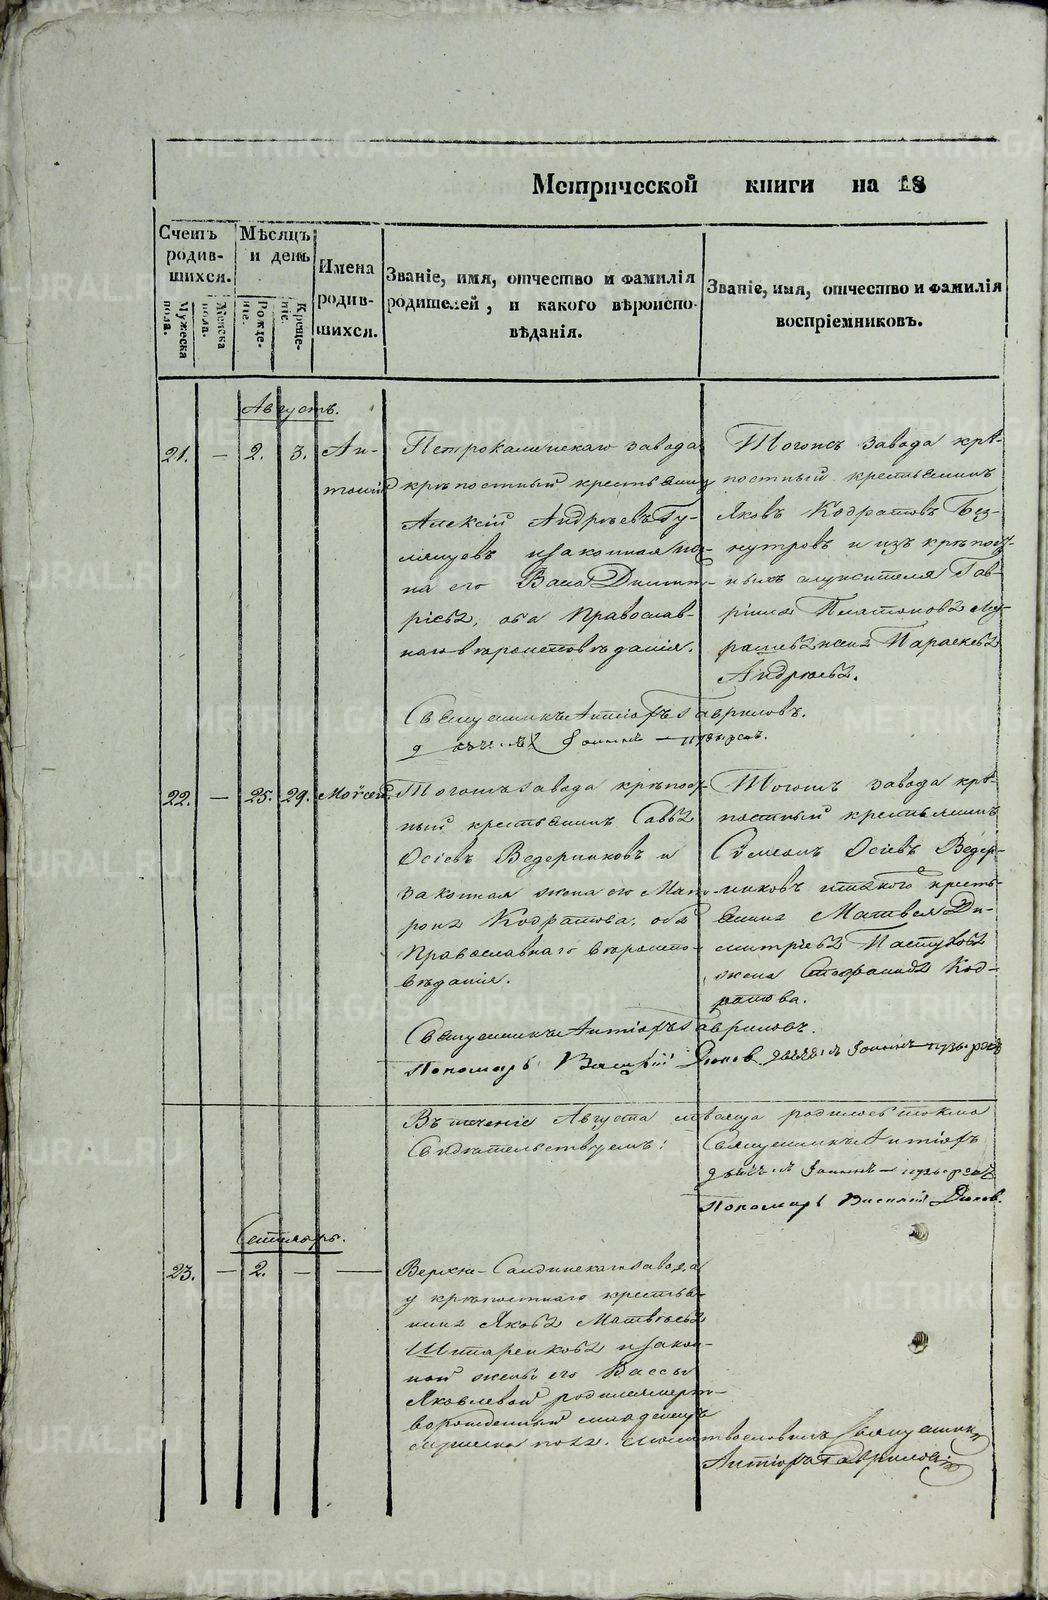 METRIKI.GASO-URAL.RU
Метрической книги на 18
Счетъ родив-шихся.
Мѣсяцъ и день
Имена родив-шихся.
Званіе, имя, отчество и фамилія родителей, и какого вѣроиспо-вѣданія.
Званіе, имя, отчество и фамилія воспріемниковъ.
Мужеска пола.
Женска пола.
Рожде-ніе.
Креще-ніе.
Августъ.
21. — 2. 3. Ан-
тоній
Петрокаминскаго завода
крѣпостный крестьянинъ
Алексій Андрѣевъ Гу-
ляцевъ и законная же-
на его Васа Димит-
ріева, оба Православ-
наго вѣроисповѣданія.
Тогожъ завода крѣ-
постный крестьянинъ
Яковъ Кодратовъ Без-
нутровъ и изъ крѣпост-
ныхъ служителя Гав-
ріила Платонова
жена Параскева
Андрѣева.
Священникъ Антіохъ Гавриловъ.
22. — 25. 29. Моѵсей.
Тогожъ завода крѣпост-
ный крестьянинъ Савва
Осіевъ Ведерниковъ и
законная жена его Мат-
рона Кодратова, оба
Православнаго вѣроиспо-
вѣданія.
Тогожъ завода крѣ-
постный крестьянинъ
Сѵмеонъ Осіевъ Ведер-
никовъ и такого кресть-
янина Матвея Ди-
митріева Пастухова
жена Стефанида Код-
ратова.
Священникъ Антіохъ Гавриловъ.
Пономарь Василій
Въ теченіе Августа мѣсяца родилось токмо
Свидѣтельствуемъ: Священникъ Антіохъ
Пономарь Василій
Сентябрь.
23. — 2. — —
Верхне-Салдинскаго завода
у крѣпостнаго крестья-
нина Якова Матвѣева
и закон-
ной жены его Вассы
Яковлевой родился мерт-
ворожденный младенецъ
пола.
Священникъ
Антіохъ Гавриловъ